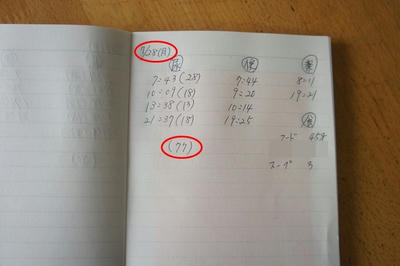 尿 便 薬
7:43(28) 7:44 8:11
10:09(18) 9:20 19:21
13:38(13) 10:14
21:37(18) 19:25 食
(77) フード 45g
スープ 3